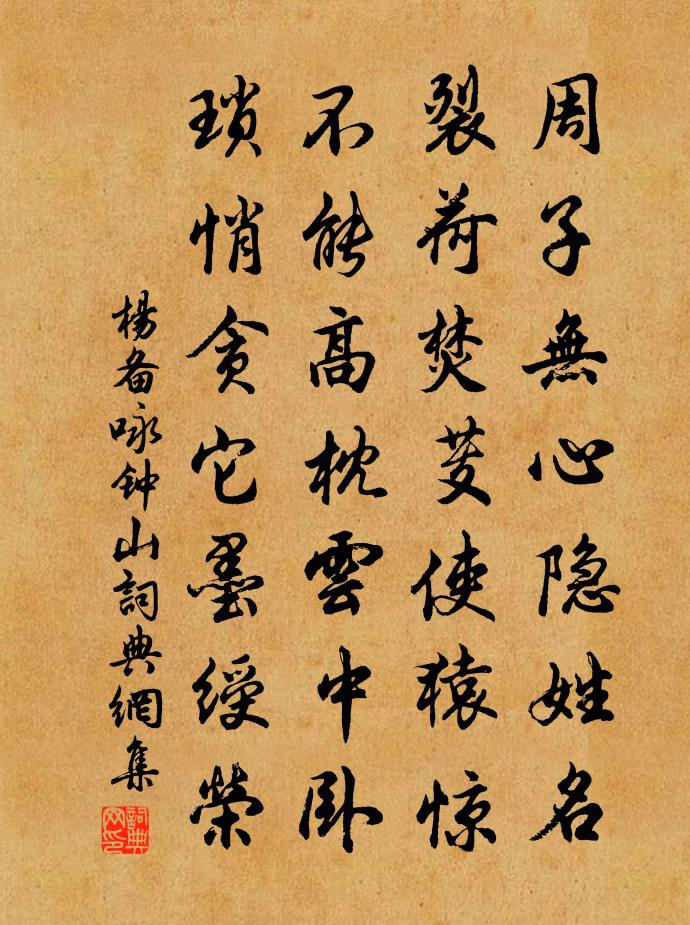 周子無心隐姓名
裂荷焚芰使猿惊
不能高枕雲中卧
瑣悄貪它墨綬榮
楊备咏钟山詞典網集
詞典网印